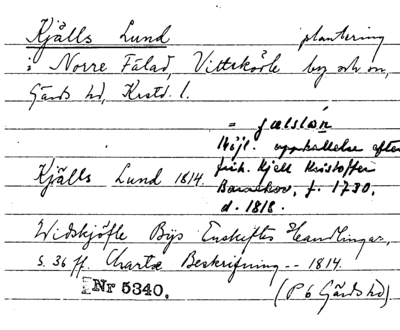 Kjälls Lund plantering
i Norre Fälad, Vittskövle by och sn,
Gärds hd, Krstd. l.
= jælslán
Möjl. uppkallelse efter
Kjälls Lund 1814. frih. Kjell Kristoffer
Barnekow, f. 1730,
d. 1818.
Widskjöfle Bÿs Enskiftes Handlingar,
s. 36 ff. Chartæ Beskrifning -- 1814.
Nr 5340. (Pl 6 Gärds hd)